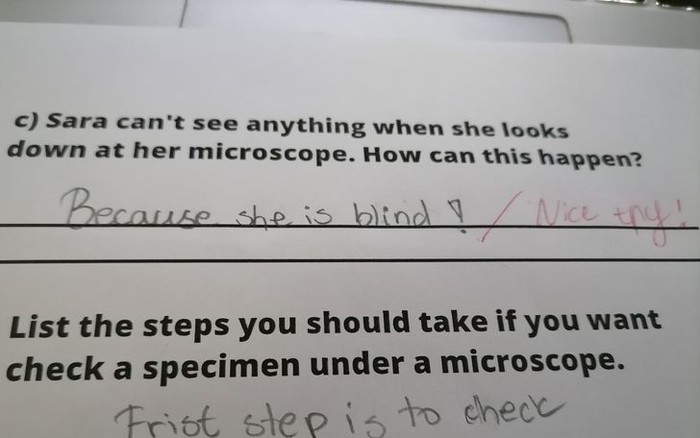 c) Sara can't see anything when she looks
down at her microscope. How can this happen?
Because she is blind! / Nice try!
List the steps you should take if you want
check a specimen under a microscope.
Frist step is to check